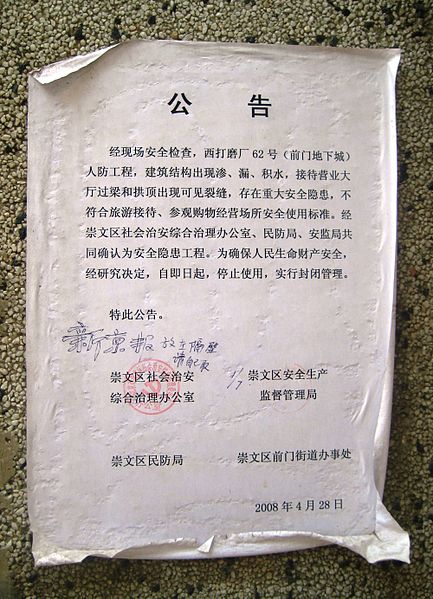 公告
经现场安全检查，西打磨厂62号（前门地下城）
人防工程，建筑结构出现渗、漏、积水，接待营业大
厅过梁和拱顶出现可见裂缝，存在重大安全隐患，不
符合旅游接待、参观购物经营场所安全使用标准。经
崇文区社会治安综合治理办公室、民防局、安监局共
同确认为安全隐患工程。为确保人民生命财产安全，
经研究决定，自即日起，停止使用，实行封闭管理。
特此公告。
新京报 放在隔壁
请自取
1/7
崇文区社会治安
综合治理办公室
崇文区安全生产
监督管理局
崇文区民防局
崇文区前门街道办事处
2008年4月28日